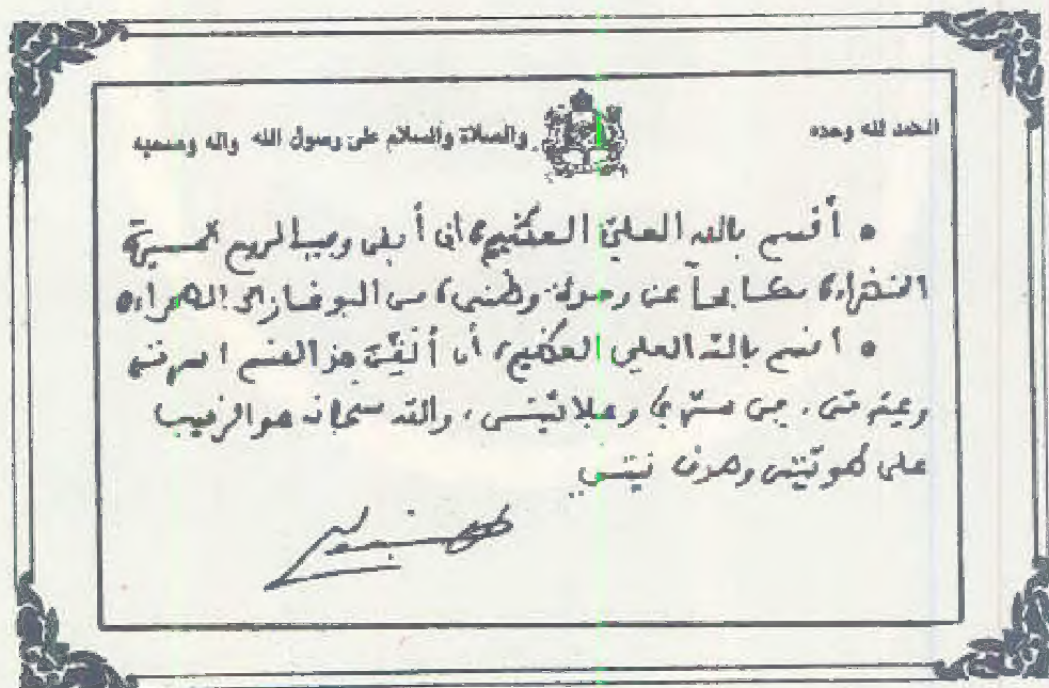 الحمد لله وحده والصلاة والسلام على رسول الله وآله وصحبه
• أقسم بالله العليّ العظيم، أن أبقى وفيا لروح المسيرة
الخضراء، مكافحاً عن وحدة وطني، من البوغاز إلى الصحراء•
• أقسم بالله العلي العظيم، أن أُلقِّن هذا القسم أسرتي
وعترتي، في سرّي وعلانيّتي، والله سبحانه هو الرقيب
على طويّتي وصدق نيتي